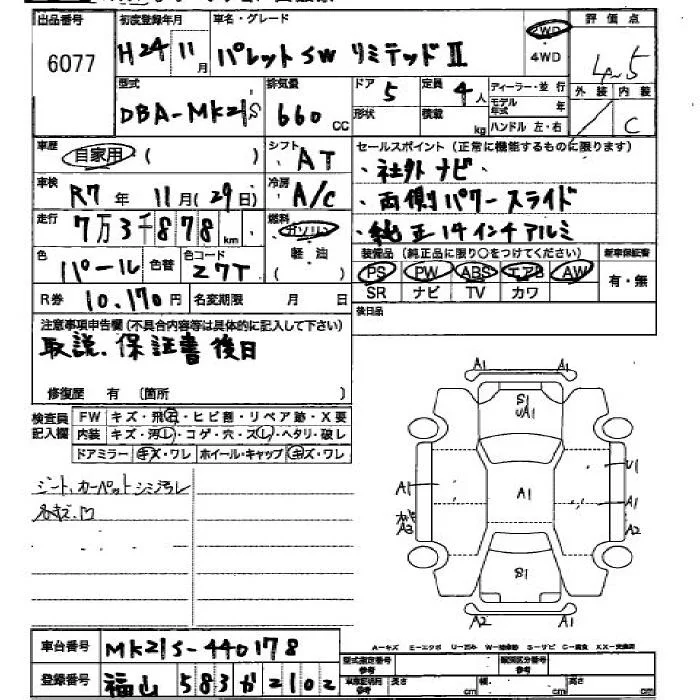 出品番号 初度登録年月 車名・グレード 評価点
6077 H24年11月 パレットSW リミテッドⅡ 2WD 4WD 4.5
型式 排気量 ドア 定員 ディーラー・並行 外装 内装
DBA-MK21S 660CC 5 4人 モデル年式 年 C
形状 積載 kg ハンドル 左・右
車歴 自家用 ( ) シフト AT セールスポイント(正常に機能するものに限ります)
・社外ナビ・
車検 R7年11月(29日) 冷房 A/C ・両側パワースライド
走行 7万3千878km 燃料 ガソリン ・純正14インチアルミ
軽・油
装備品(純正品に限り〇をつけてください) 新車保証書
色 パール 色替 色コード Z7T PS PW ABS エアB AW 有・無
SR ナビ TV カワ
R券 10,170円 名変期限 月 日
後日品
注意事項申告欄(不具合内容等は具体的に記入して下さい)
取説、保証書後日
修復歴 有 〔箇所 〕
検査員記入欄 FW キズ・飛石・ヒビ割・リペア跡・X要
内装 キズ・汚レ・コゲ・穴・スレ・ヘタリ・破レ
ドアミラー キズ・ワレ ホイール・キャップ キズ・ワレ
シート、カーペットシミ汚レ
A1 A1
S1
UA1
A1 A1 U1
A1
A3 A2
S1
A2 A1
A-キズ E-エクボ U-凹み W-補修跡 S-サビ C-腐食 XX-交換済
車台番号 MK21S-440178
型式指定番号 参考 類別区分番号 参考
登録番号 福山 583か2102
車庫証明用 参考 長さ 幅 高さ